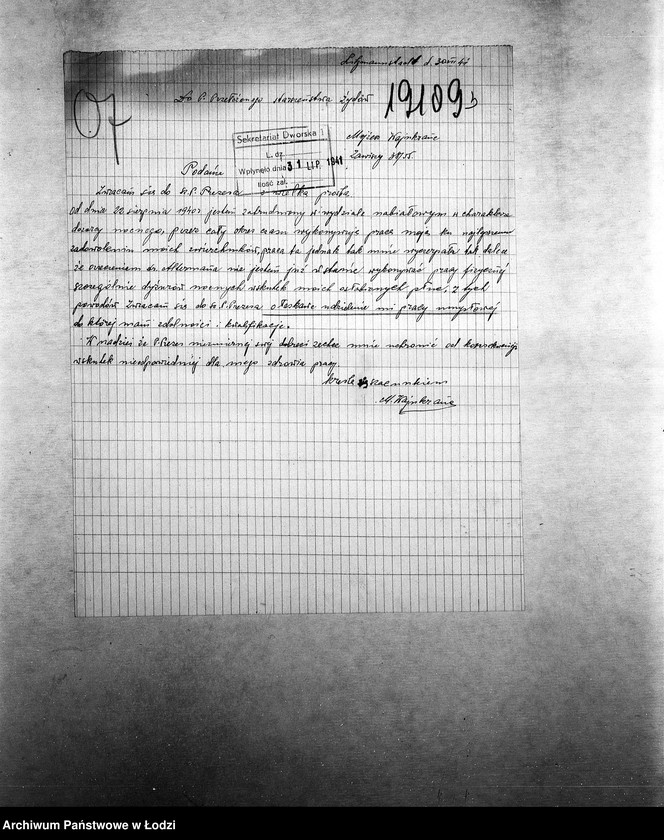 Litzmannstadt d. 30 VII 41
Do P. Przełożonego starszeństwa Żydów
07
19109
Mojżesz Wajnkranc
Zawiszy
Sekretariat Dworska 1
L. dz.
Wpłynęło dnia 31 LIP. 1941
Ilość zał.
Podanie
Zwracam się do W. P. Prezesa z wielką prośbą
od dnia 22 sierpnia 1940 r jestem zatrudniony w wydziale nabiałowym w charakterze
dozorcy nocnego, przez cały okres czasu wykonywuję pracę moją ku
zadowoleniu moich zwierzchników, praca ta jednak tak mnie wyczerpała tak dalece
że orzeczeniem dr. nie jestem już w stanie wykonywać pracy fizycznej
szczególnie dyżurów nocnych wskutek moich osłabionych płuc, z tych
powodów Zwracam się do W. P. Prezesa o łaskawe udzielenie mi pracy umysłowej
do której mam zdolności i kwalifikacje.
W nadziei że P. Prezes niezmierną swą dobroć zechce mnie uchronić od
wskutek nieodpowiedniej dla mego zdrowia pracy.
kreślę się z szacunkiem
M. Wajnkranc
Archiwum Państwowe w Łodzi